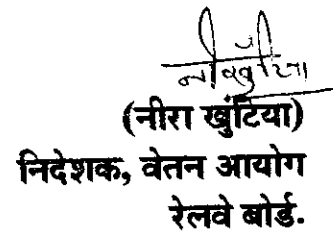 (नीरा खुंटिया)
निदेशक, वेतन आयोग
रेलवे बोर्ड.